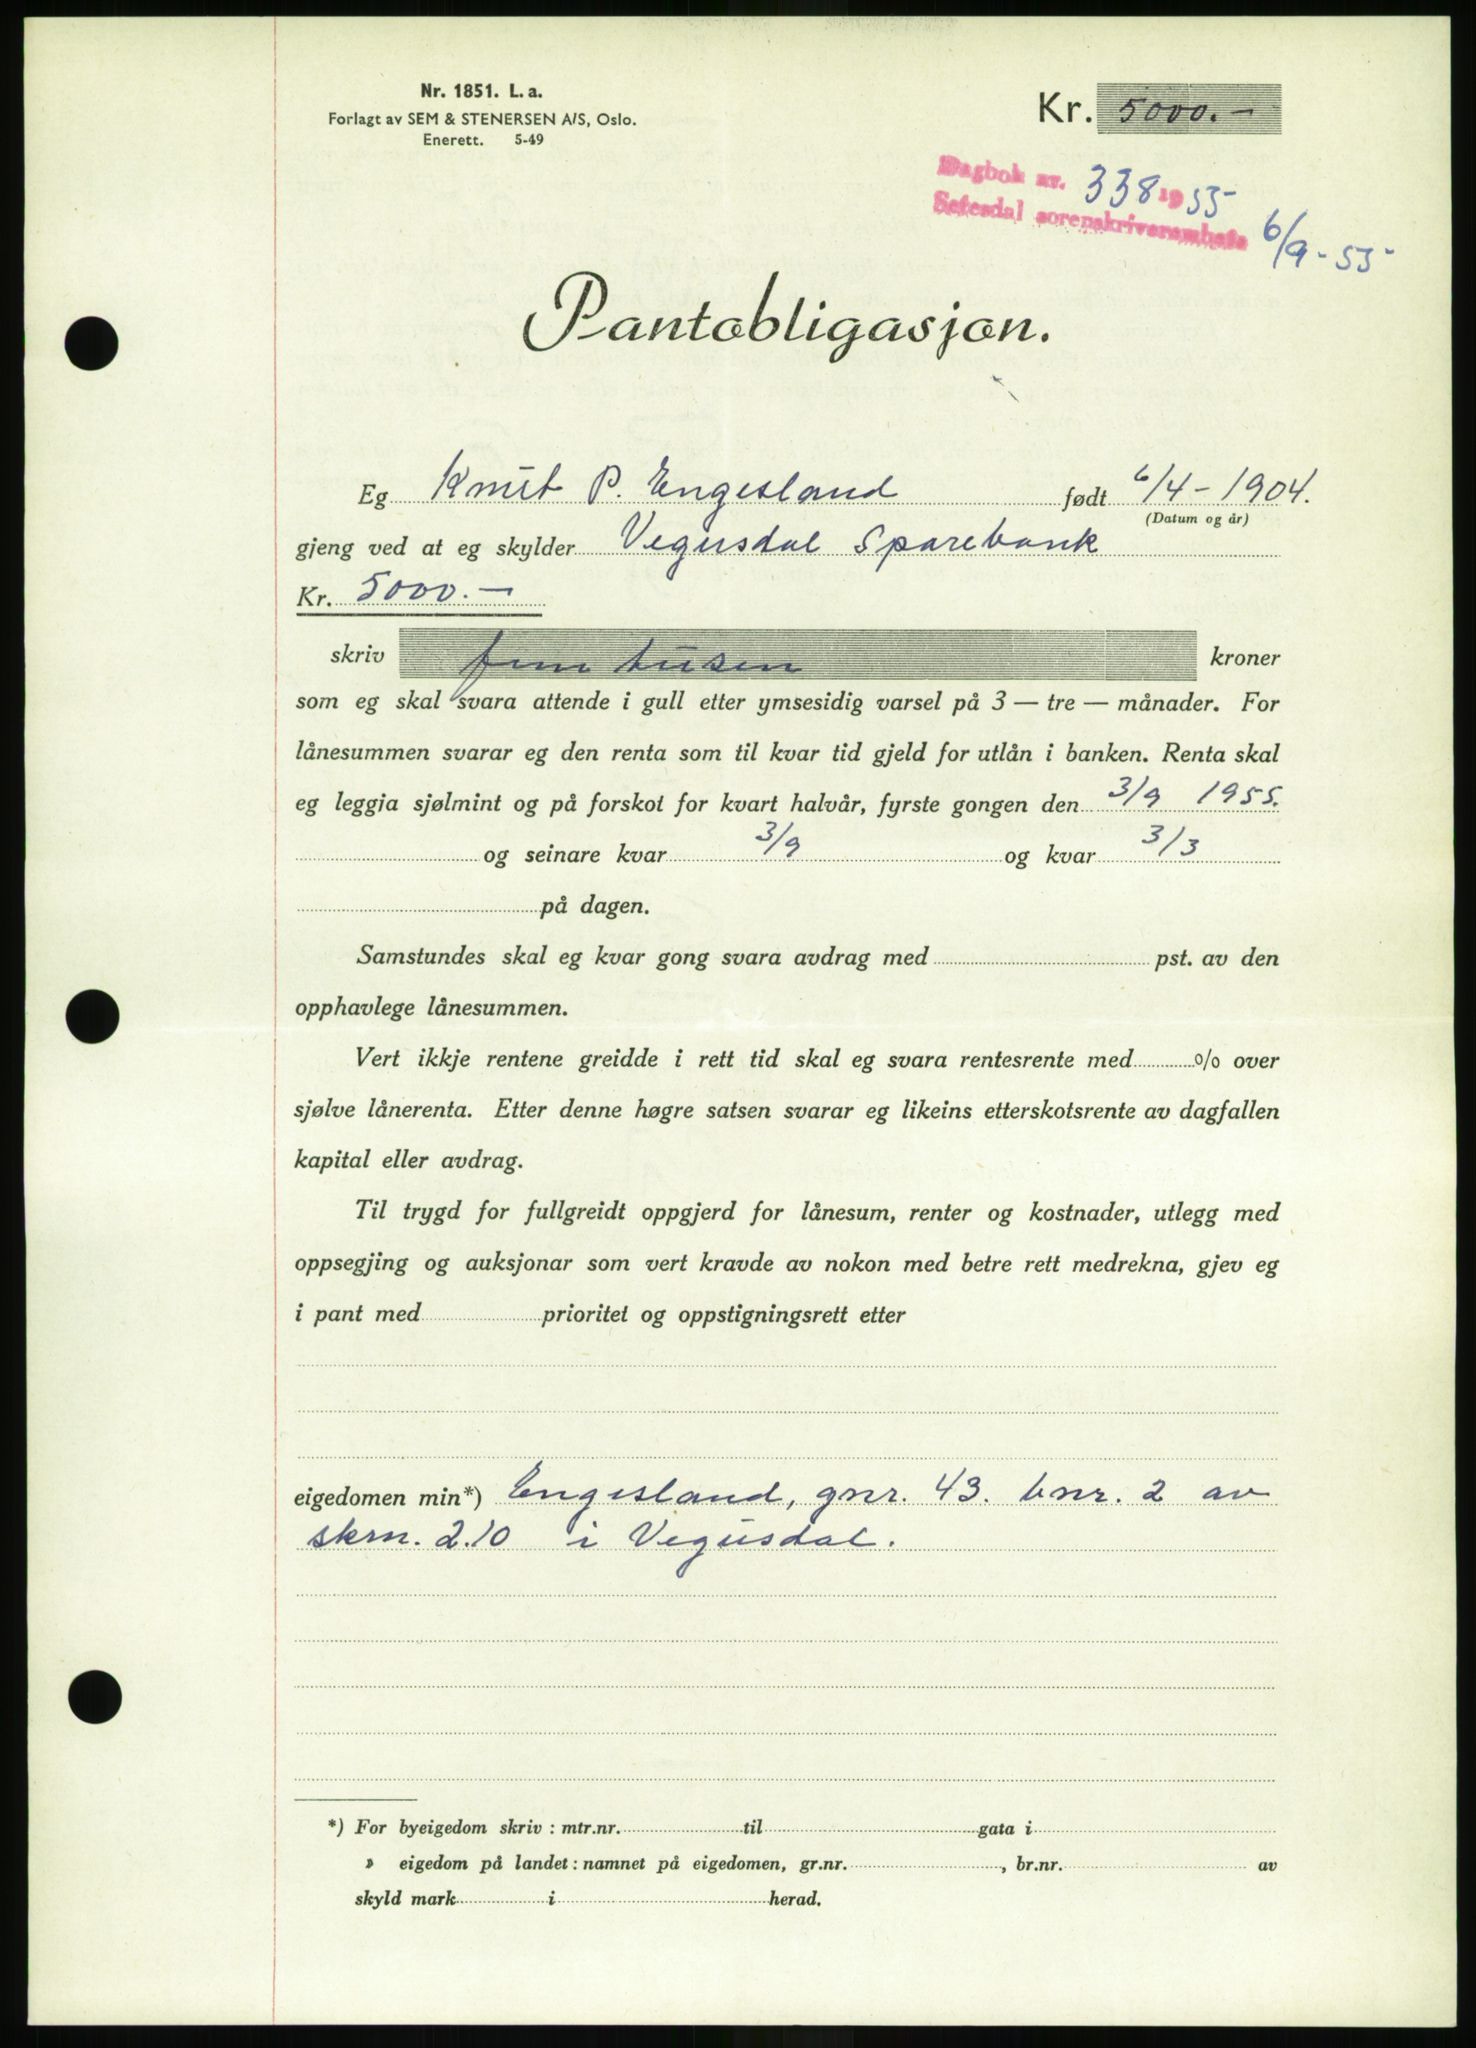 Nr. 1851. L. a.
Forlagt av SEM & STENERSEN A/S, Oslo.
Enerett. 5-49
Kr. 5000.-
Dagbok nr. 338 1955
Setesdal sorenskriverembete 6/9-55
Pantobligasjon.
Eg Knut P. Engesland født 6/4-1904.
(Datum og år)
gjeng ved at eg skylder Vegusdal Sparebank
Kr. 5000.-
skriv fem tusen kroner
som eg skal svara attende i gull etter ymsesidig varsel på 3 — tre — månader. For
lånesummen svarar eg den renta som til kvar tid gjeld for utlån i banken. Renta skal
eg leggia sjølmint og på forskot for kvart halvår, fyrste gongen den 3/9 1955.
og seinare kvar 3/9 og kvar 3/3
på dagen.
Samstundes skal eg kvar gong svara avdrag med pst. av den
opphavlege lånesummen.
Vert ikkje rentene greidde i rett tid skal eg svara rentesrente med % over
sjølve lånerenta. Etter denne høgre satsen svarar eg likeins etterskotsrente av dagfallen
kapital eller avdrag.
Til trygd for fullgreidt oppgjerd for lånesum, renter og kostnader, utlegg med
oppsegjing og auksjonar som vert kravde av nokon med betre rett medrekna, gjev eg
i pant med prioritet og oppstigningsrett etter
eigedomen min*) Engesland, gnr. 43. bnr. 2 av
skm. 2.10 i Vegusdal.
*) For byeigedom skriv : mtr.nr. til gata i
» eigedom på landet : namnet på eigedomen, gr.nr. , br.nr. av
skyld mark i herad.